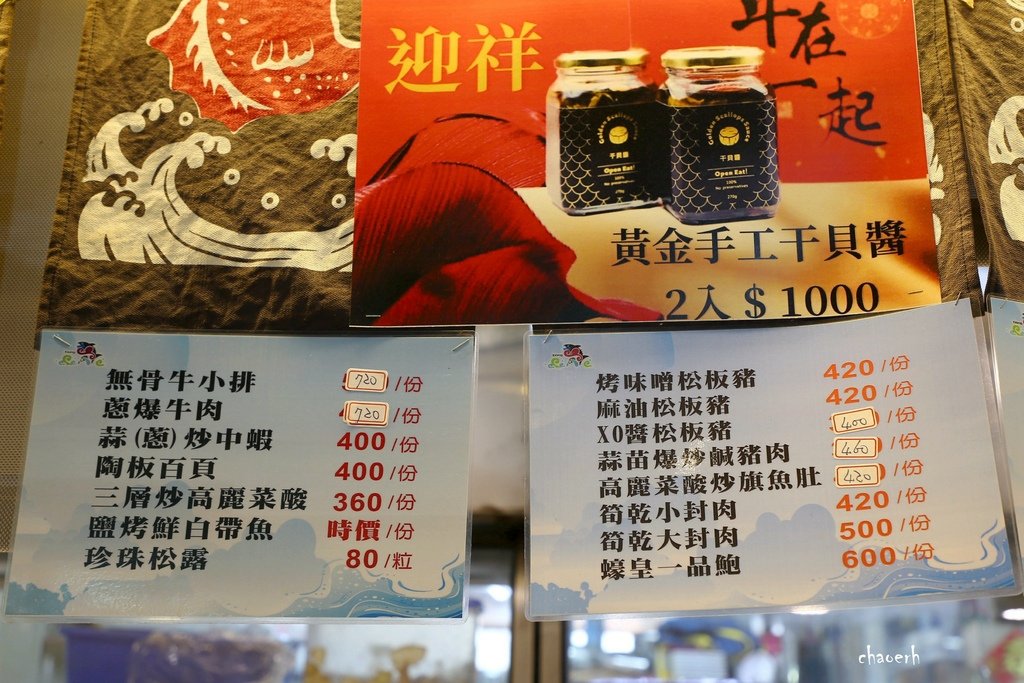 迎祥
在一起
Golden Scallops Sauce
干貝醬
Open Eat!
100%
No preservatives
270g
Golden Scallops Sauce
干貝醬
Open Eat!
100%
No preservatives
270g
黃金手工干貝醬
2入 $ 1000
無骨牛小排 720 /份
蔥爆牛肉 720 /份
蒜(蔥)炒中蝦 400 /份
陶板百頁 400 /份
三層炒高麗菜酸 360 /份
鹽烤鮮白帶魚 時價 /份
珍珠松露 80 /粒
烤味噌松板豬 420 /份
麻油松板豬 420 /份
XO醬松板豬 400 /份
蒜苗爆炒鹹豬肉 460 /份
高麗菜酸炒旗魚肚 420 /份
筍乾小封肉 420 /份
筍乾大封肉 500 /份
蠔皇一品鮑 600 /份
chaoerh